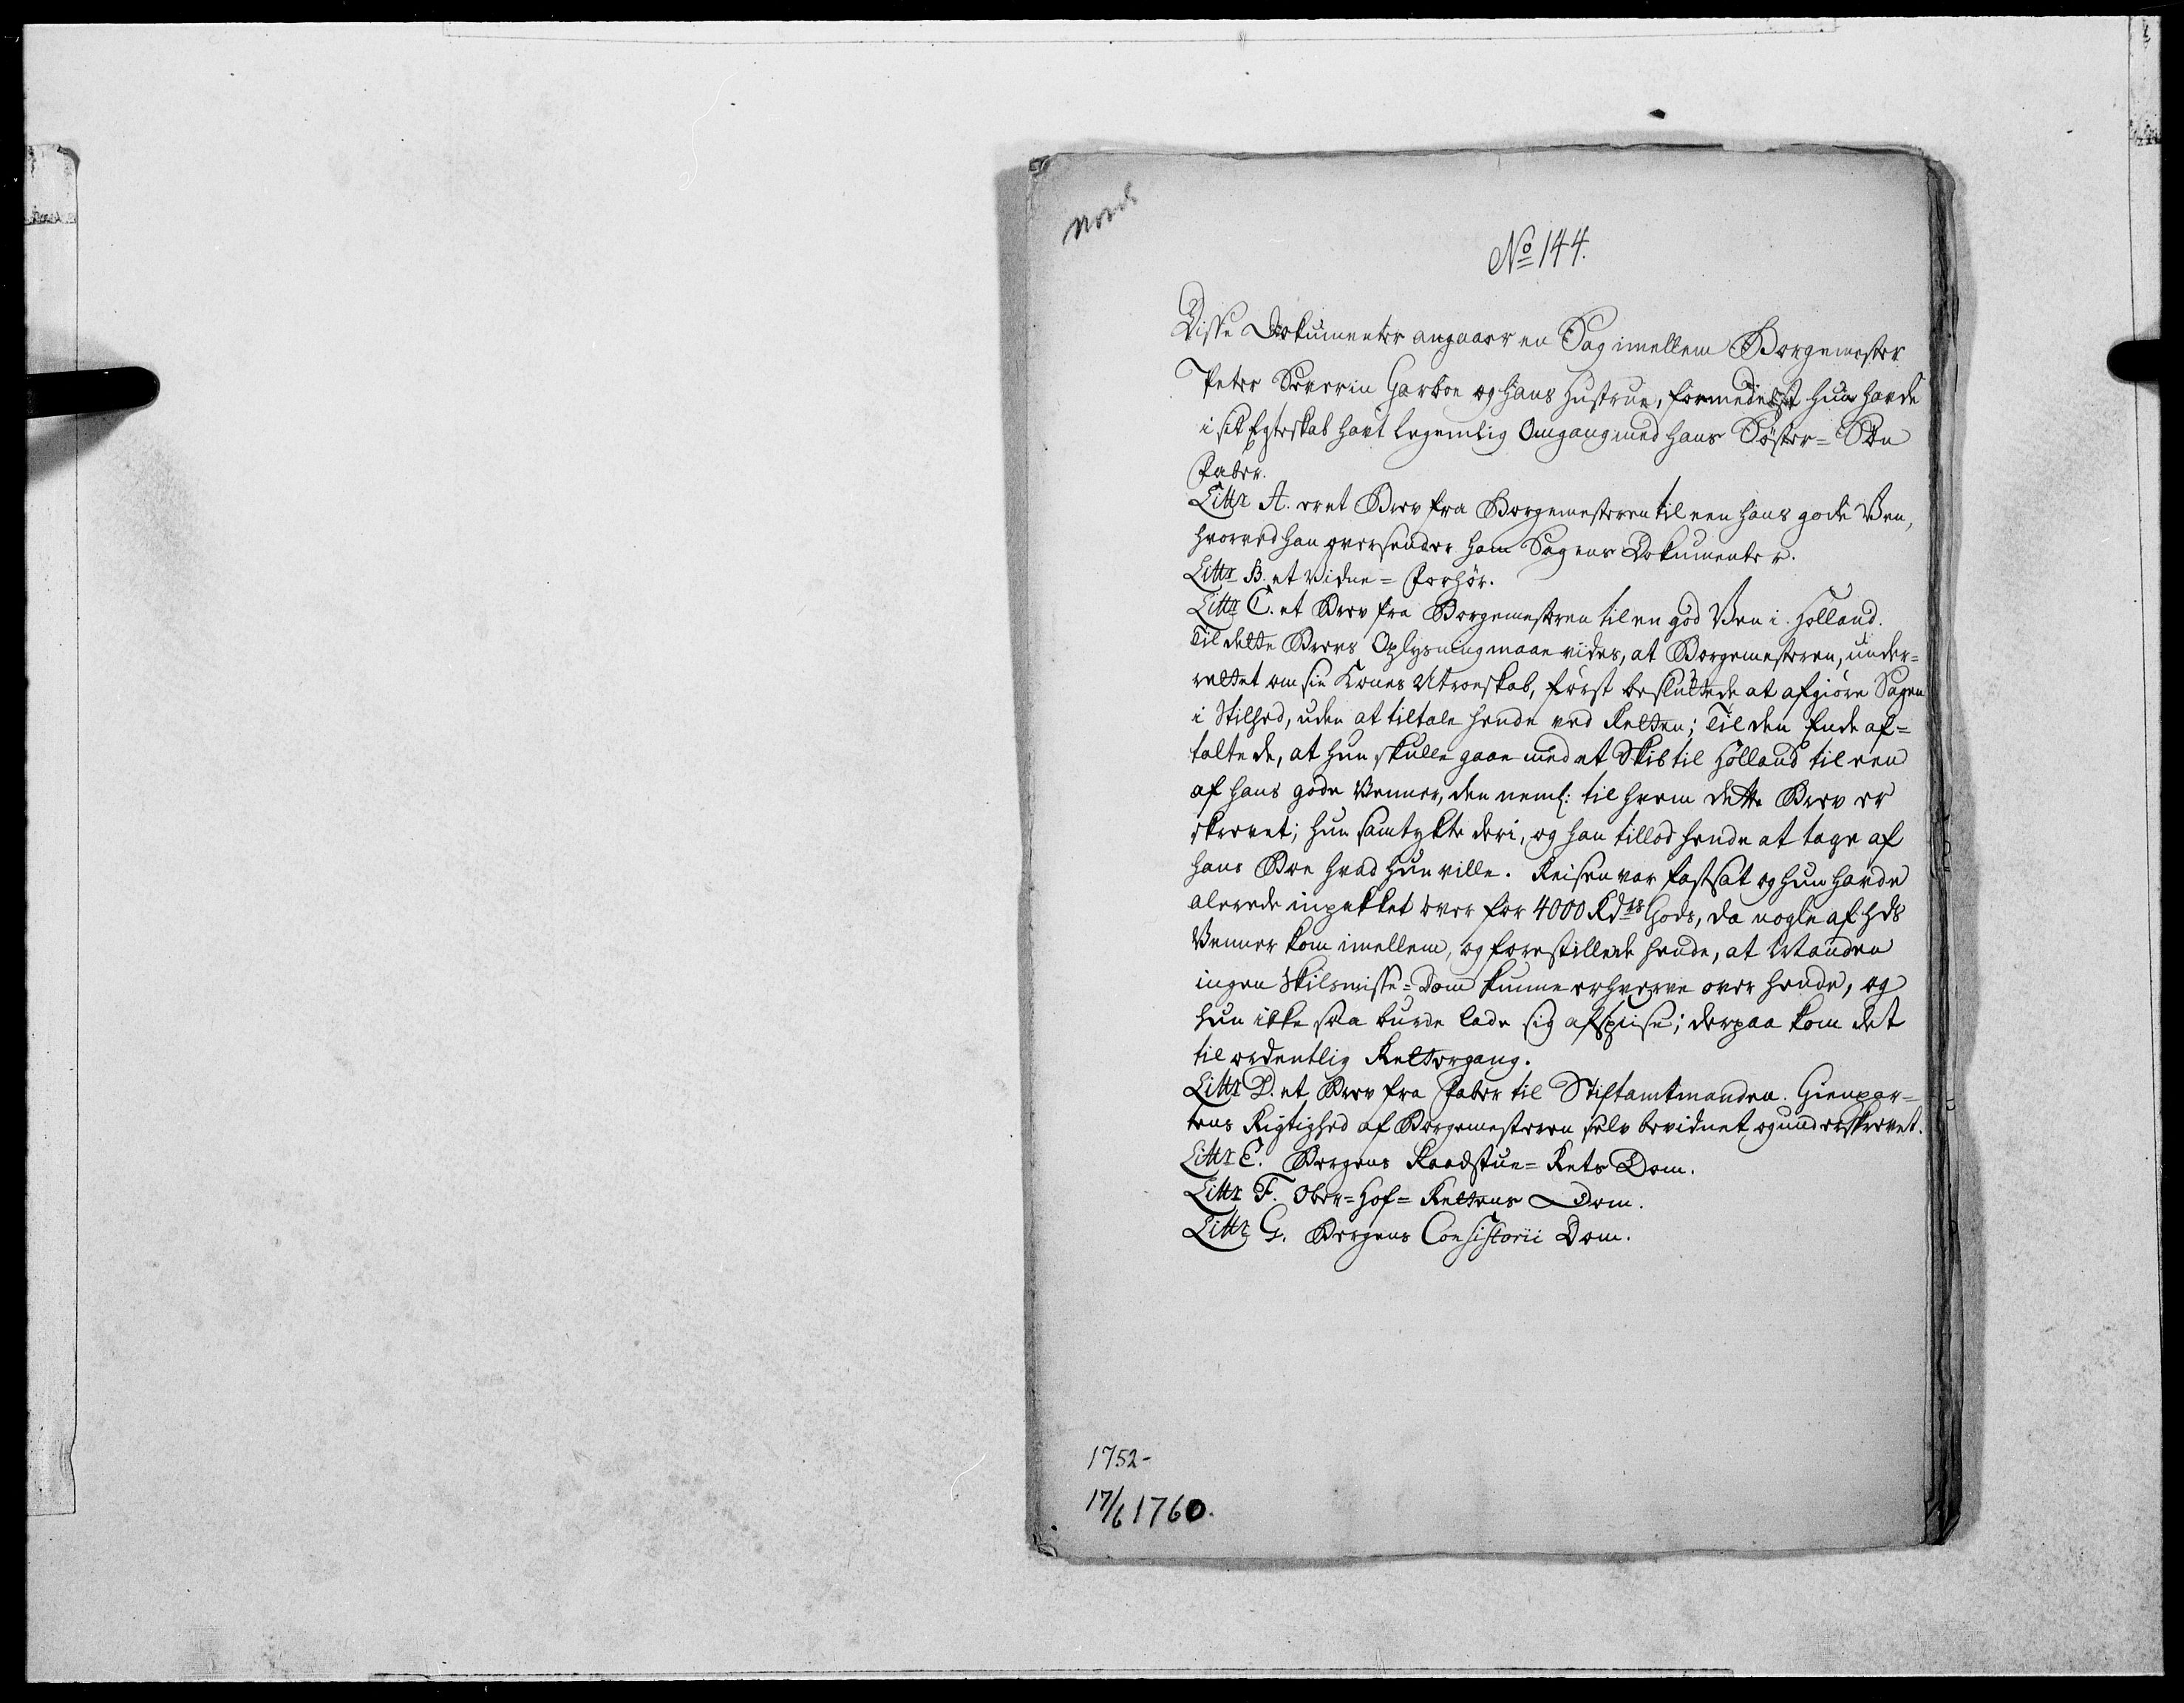 Norsk
No 144.
Disse Dokumenter angaaer en Sag imellem Borgemester
Peter Severin Garboe og hans Hustrue, formedelst hun havde
i sit Egteskab havt legemlig Omgang med hans Söster=Sön
Faber.
Littr A. er et Brev fra Borgemesteren til een hans gode Ven,
hvorved han oversender ham Sagens Dokumenter.
Littr B. et Vidne=Forhör.
Littr C. et Brev fra Borgemesteren til en god Ven i Holland.
Til dette Brevs Oplysning maae vides, at Borgemesteren, under=
rettet om sin Kones Utroeskab, först besluttede at afgiöre Sagen
i Stilhed, uden at tiltale hende ved Retten; Til den Ende af=
talte de, at hun skulle gaae med et Skib til Holland til een
af hans gode Venner, den neml: til hvem dette Brev er
skrevet; hun samtykte deri, og han tillod hende at tage af
hans Boe hvad hun ville. Reisen var fastsat og hun havde
alerede inpakket over for 4000 Rdrs Gods, da nogle af hds
Venner kom imellem, og forestillede hende, at Manden
ingen Skilsmisse=Dom kunne erhverve over hende, og
hun ikke saa burde lade sig afspise; derpaa kom det
til ordentlig Rettergang.
Littr D. et Brev fra Faber til Stiftamtmanden. Gienpar=
tens Rigtighed af Borgemesteren selv bevidnet og underskrevet.
Littr E. Bergens Raadstue=Rets Dom.
Littr F. Ober=Hof=Rettens Dom.
Littr G. Bergens Consistorii Dom.
1752-
17/6 1760.